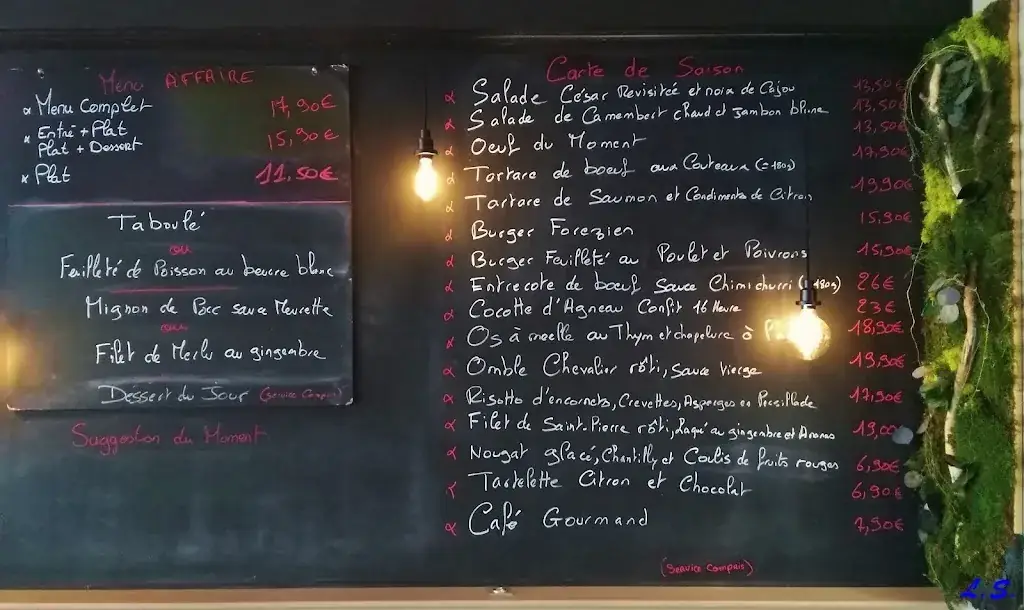 Menu AFFAIRE
Menu Complet 17,90€
Entré + Plat
Plat + Dessert 15,90€
Plat 11,50€
Taboulé
ou
Feuilleté de Poisson au beurre blanc
Mignon de Porc sauce Meurette
ou
Filet de Merlu au gingembre
Dessert du Jour (Service Compris)
Suggestion du Moment
Carte de Saison
Salade César Revisitée et noix de Cajou 13,50€
Salade de Camembert chaud et jambon blanc 13,50€
Oeuf du Moment 13,50€
Tartare de boeuf aux Couteaux (≃180g) 17,90€
Tartare de Saumon et Condiments de Citron 19,90€
Burger Forezien 15,90€
Burger Feuilleté au Poulet et Poivrons 15,90€
Entrecote de boeuf sauce Chimichurri 180g) 26€
Cocotte d'Agneau Confit 16 Heure 23€
Os à moelle au Thym et chapelure 18,90€
Omble Chevalier rôti, Sauce Vierge 19,90€
Risotto d'encornets, Crevettes, Asperges en Persillade 17,90€
Filet de Saint-Pierre rôti, Laqué au gingembre et Ananas 19,00€
Nougat glacé, Chantilly et Coulis de fruits rouges 6,90€
Tartelette Citron et Chocolat 6,90€
Café Gourmand 7,90€
(Service Compris)
L.S.